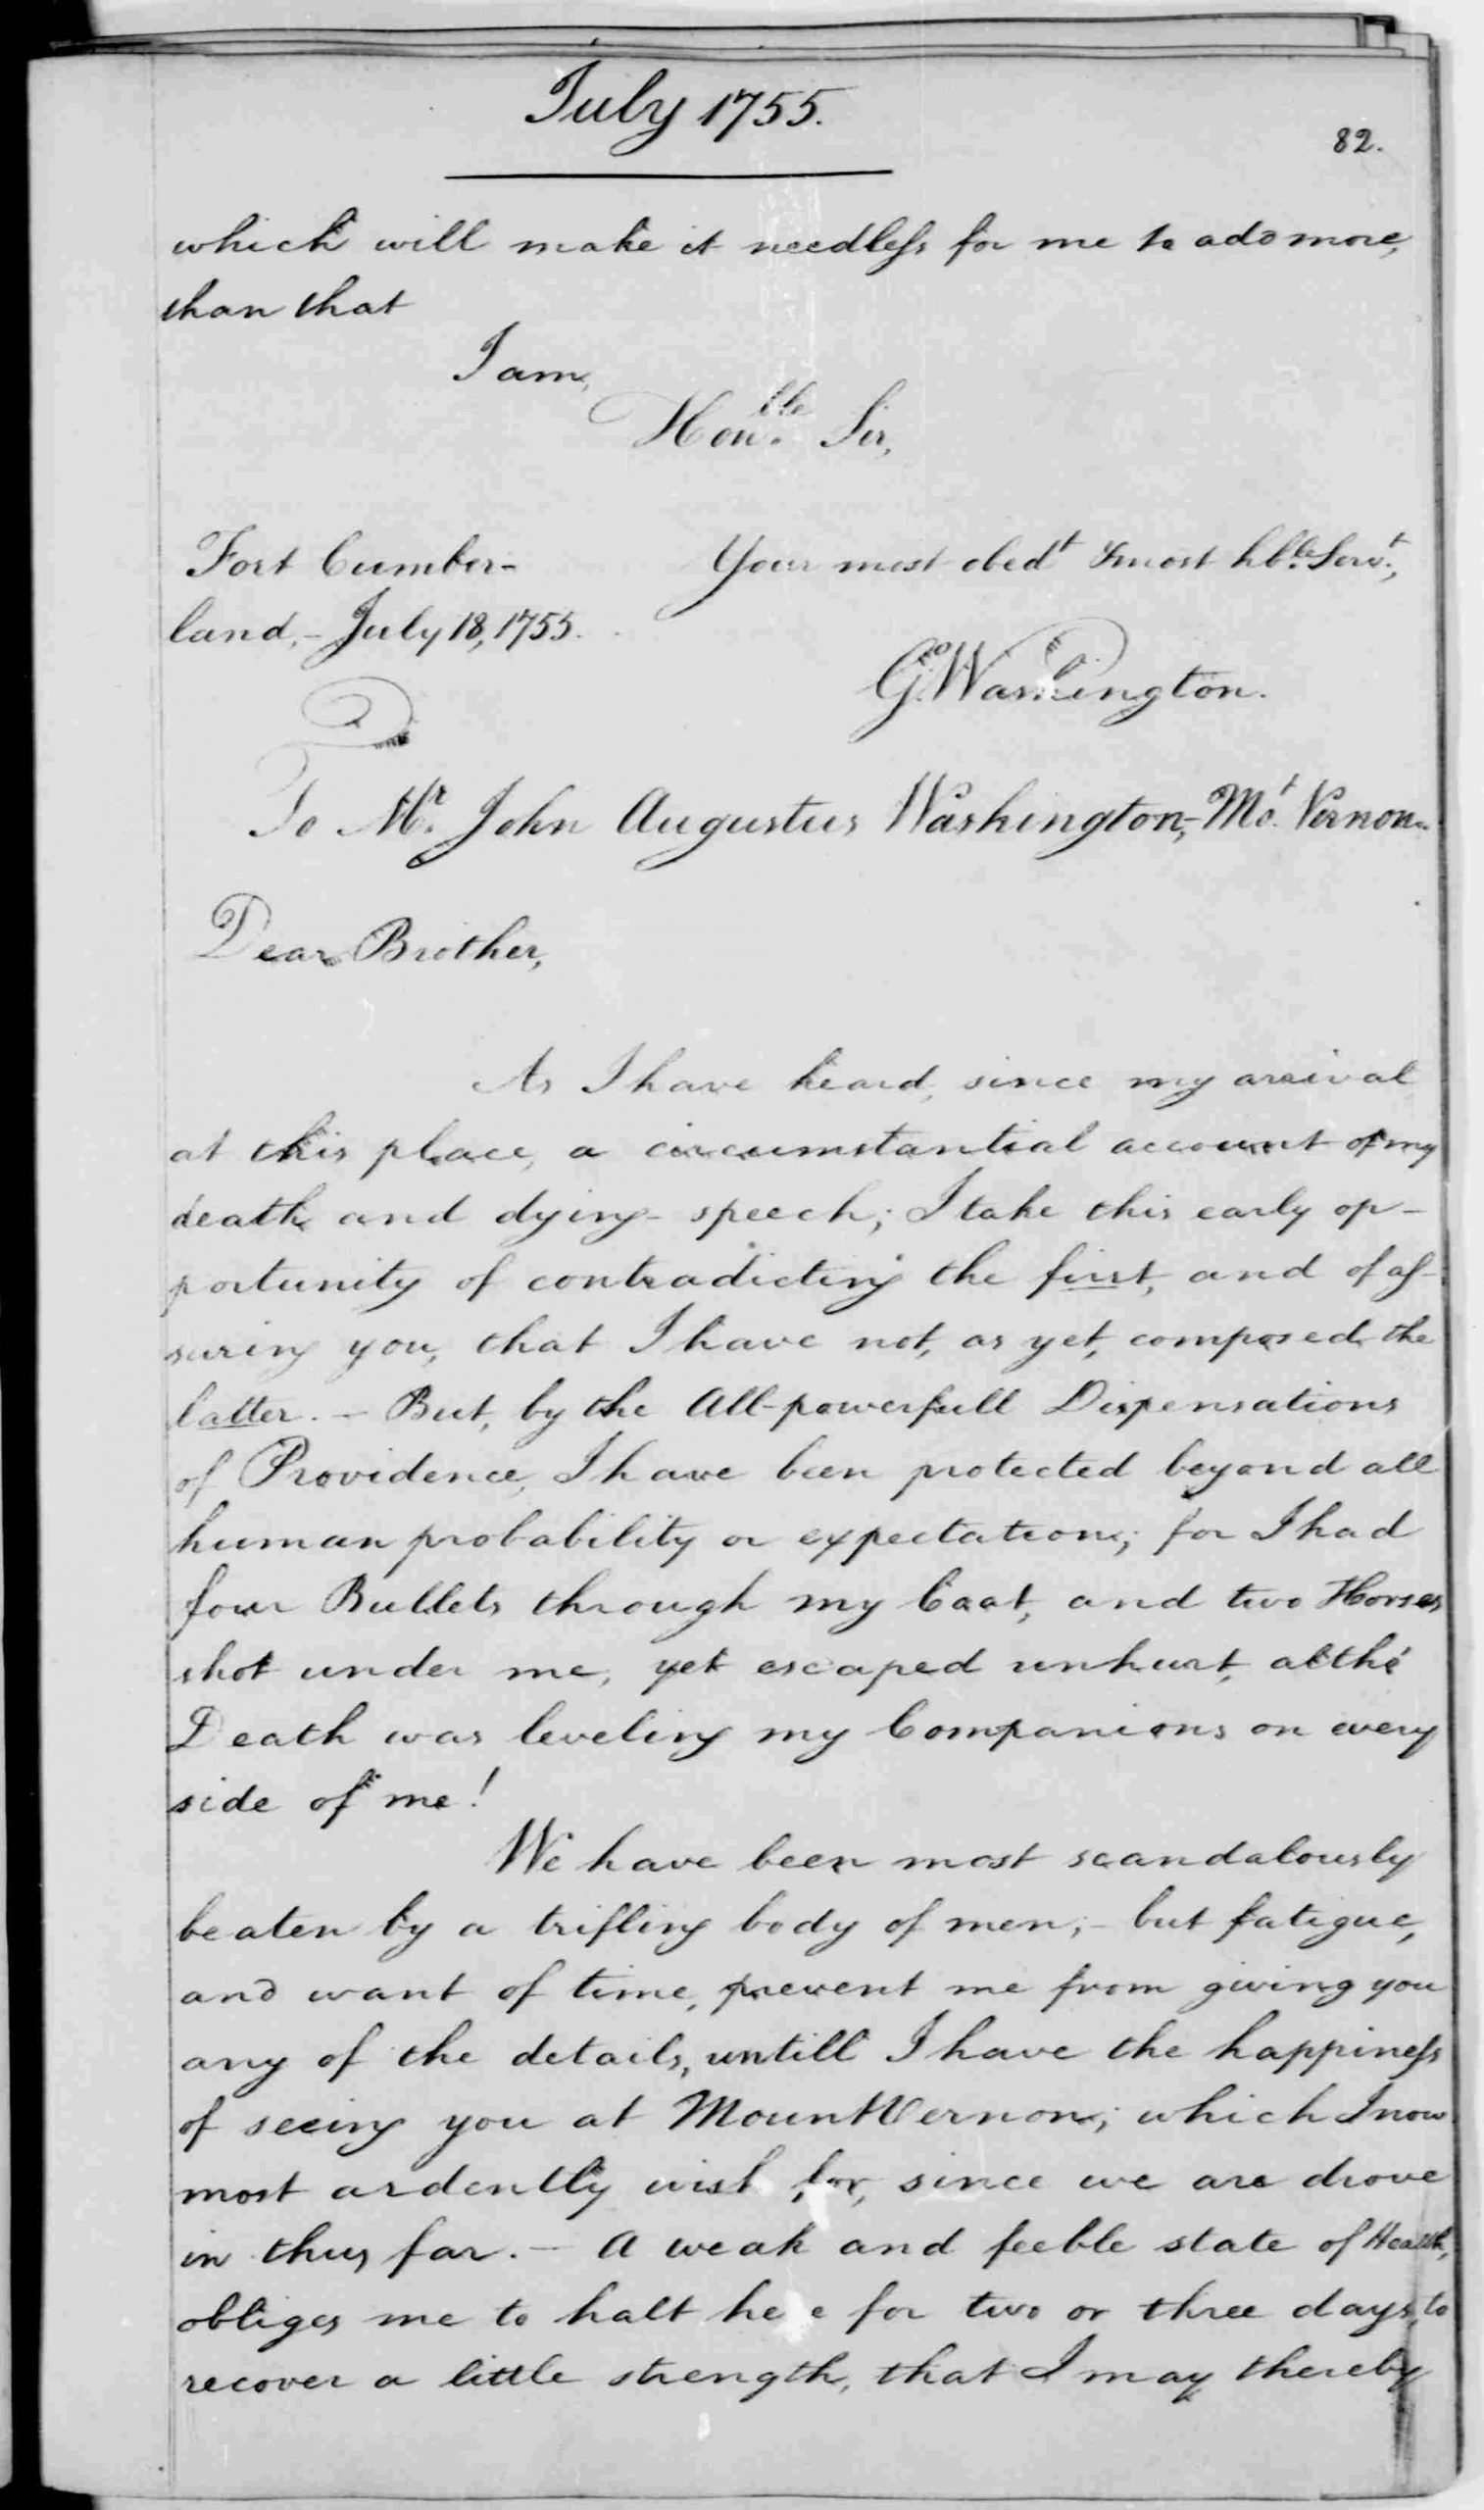 July 1755.
82.
which will make it needless for me to add more,
than that
I am,
Hon.ble Sir,
Fort Cumber-
land,- July 18, 1755.
Your most obedt & most hble. Servt.,
Go. Washington.
To Mr. John Augustus Washington,- Mt. Vernon.
Dear Brother,
As I have heard, since my arrival
at this place, a circumstantial account of my
death and dying speech; I take this early op-
portunity of contradicting the first, and of as-
suring you, that I have not, as yet, composed the
latter. - But, by the All-powerfull Dispensations
of Providence, I have been protected beyond all
human probability or expectation; for I had
four Bullets through my Coat, and two Horses
shot under me, yet escaped unhurt, altho'
Death was leveling my Companions on every
side of me!
We have been most scandalously
beaten by a trifling body of men;- but fatigue,
and want of time, prevent me from giving you
any of the details, untill I have the happiness
of seeing you at Mount Vernon; which I now
most ardently wish for, since we are drove
in thus far. - A weak and feeble state of Health,
obliges me to halt here for two or three days, to
recover a little strength, that I may thereby